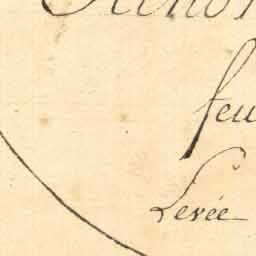 feu
Levée